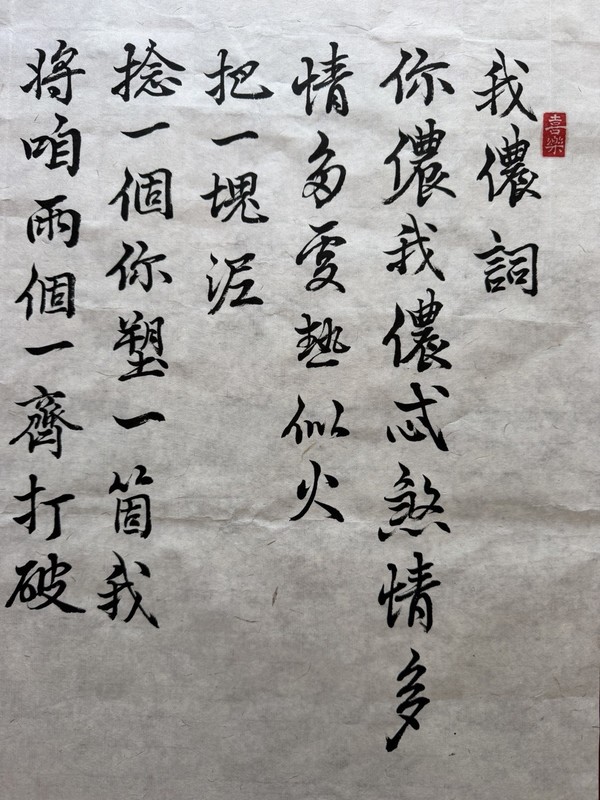 喜樂
我儂詞
你儂我儂忒煞情多
情多處熱似火
把一塊泥
捻一個你塑一箇我
將咱兩個一齊打破